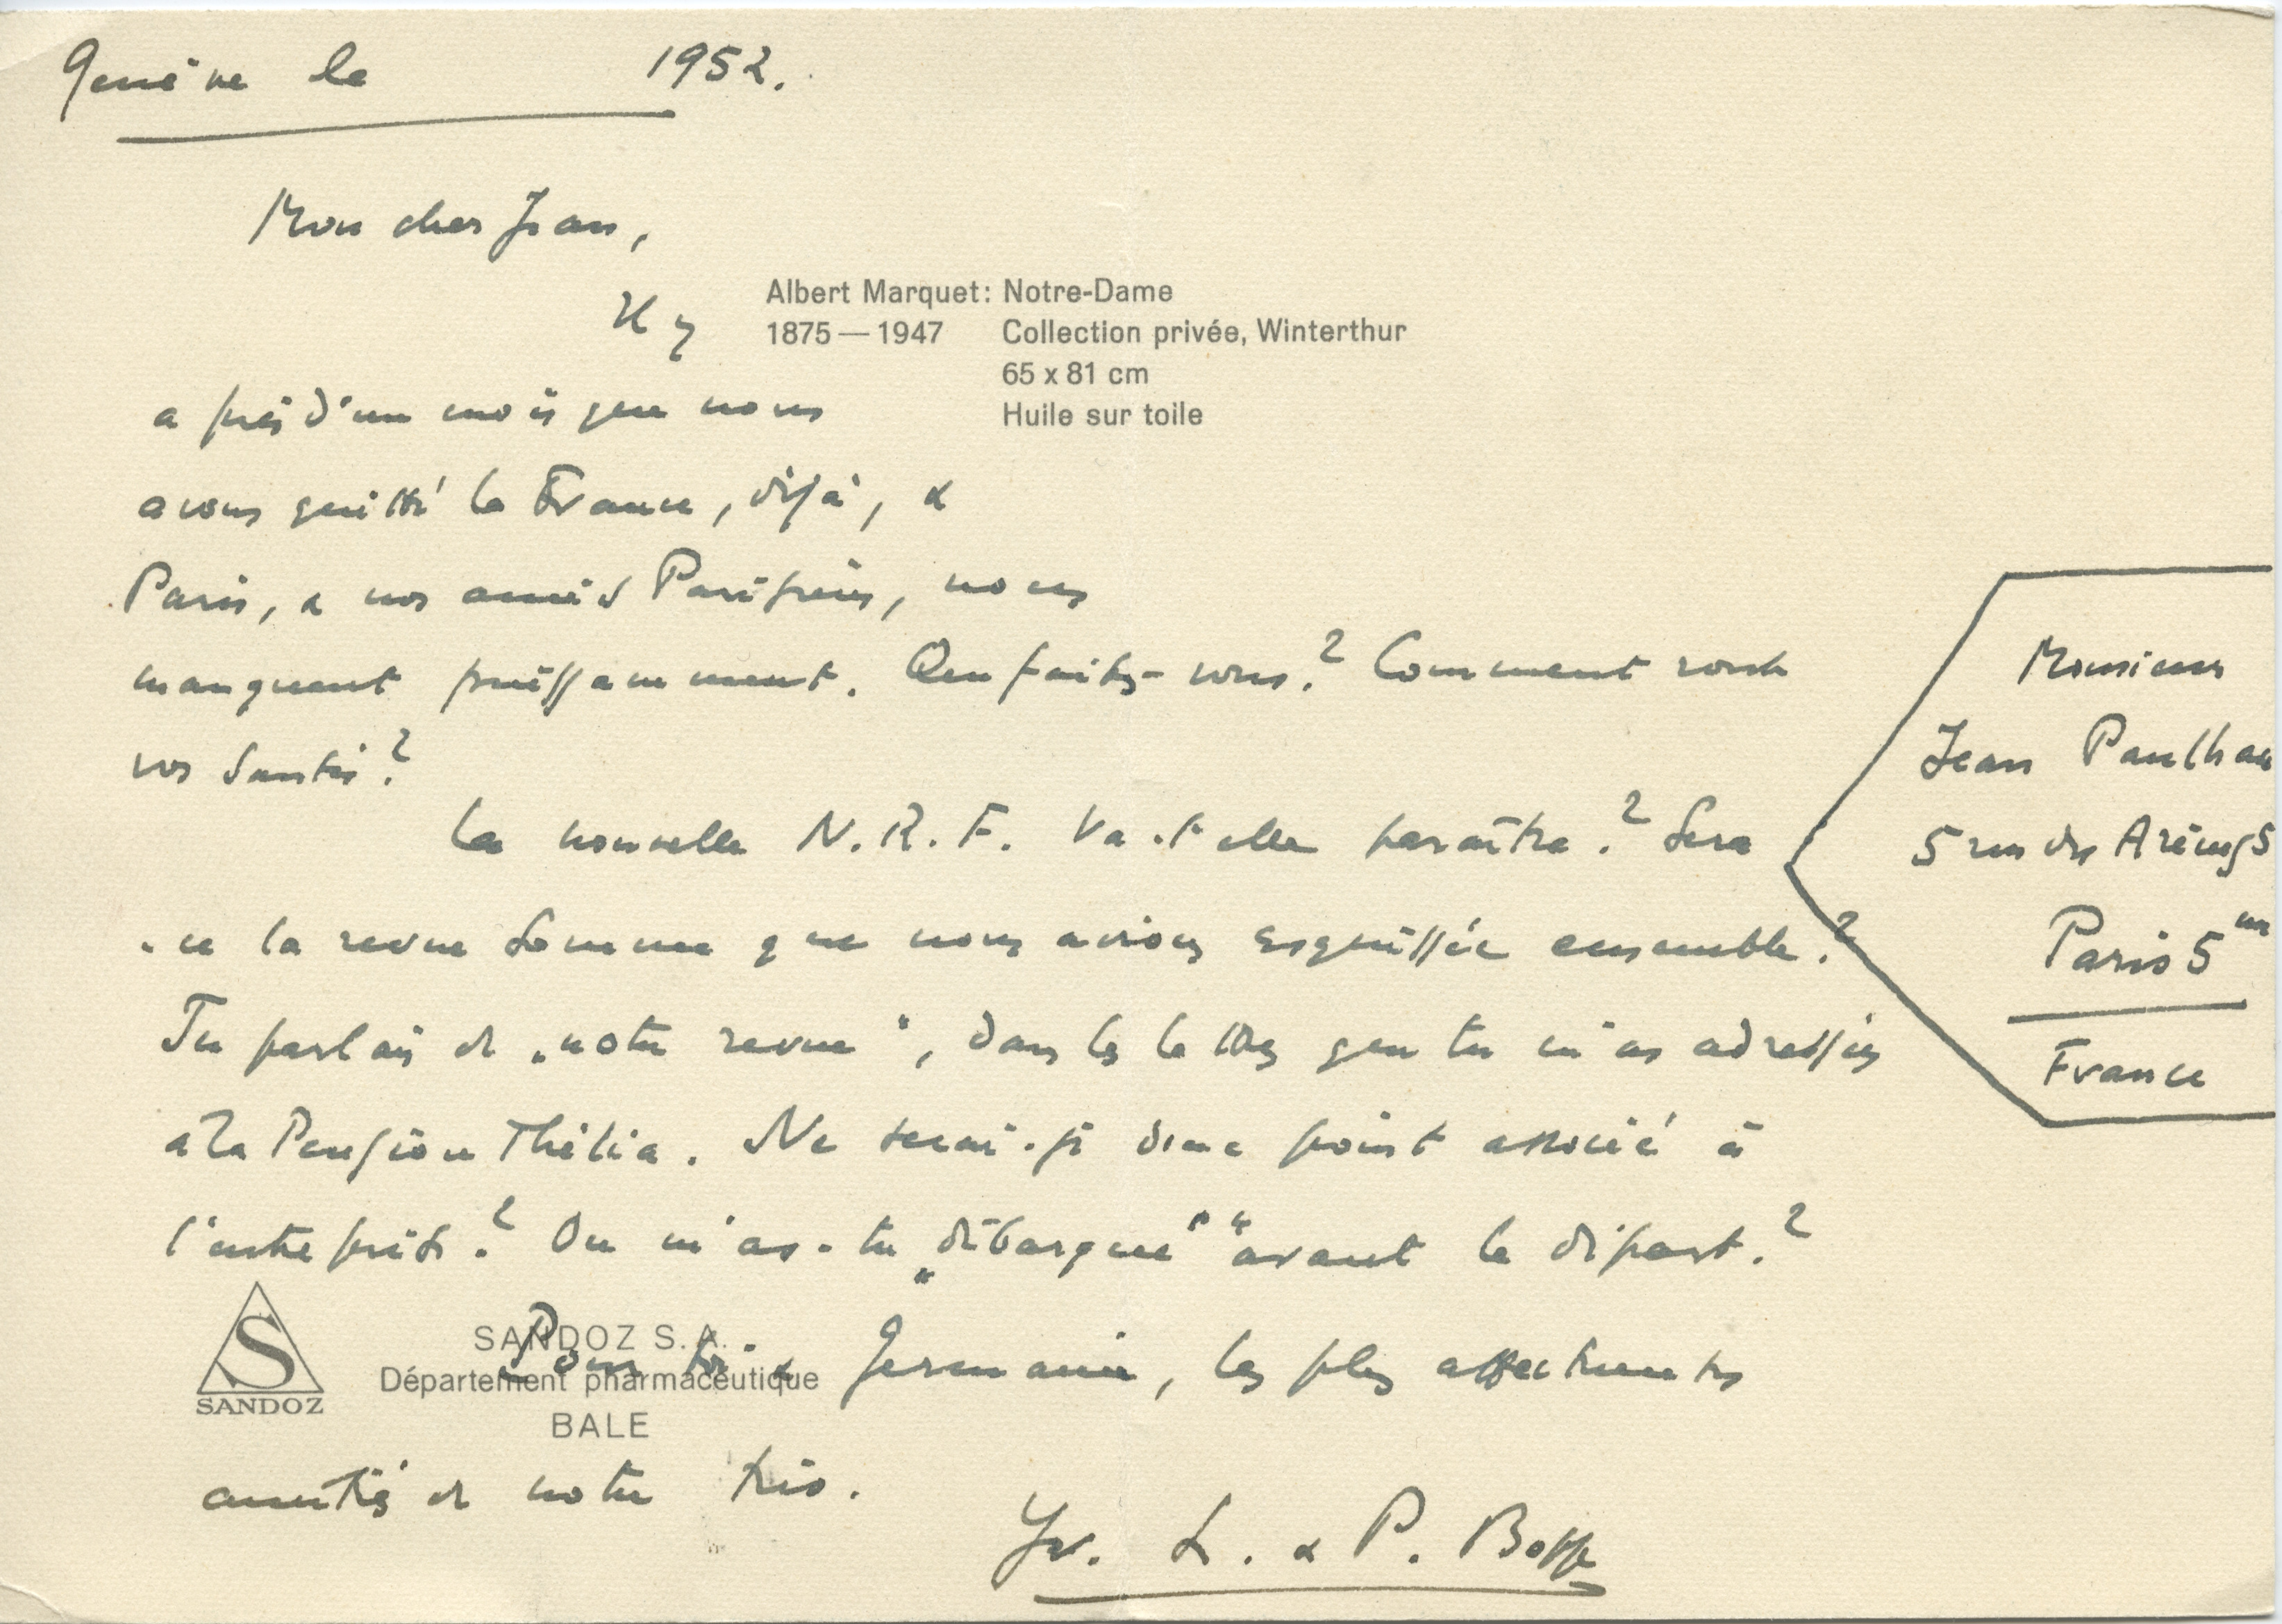 Genève le 1952.
Mon cher Jean,
Il y
Albert Marquet: Notre-Dame
1875—1947 Collection privée, Winterthur
65 x 81 cm
Huile sur toile
a près d'un mois que nous
avons quitté la France, déjà, &
Paris, & nos amis Parisiens, nous
manquent puissamment. Que faites-vous? Comment vont
vos santés?
La nouvelle N.R.F. va-t-elle paraître? Sera
-ce la revue somme que nous avions esquissée ensemble?
Tu parlais de „notre revue“, dans les lettres que tu m'as adressées
à la Pension Thélia. Ne serai-je donc point associé à
l'entreprise? Ou m'as-tu „débarqué“ “avant le départ?
Pour toi & Germaine, les plus affectueuses
amitiés de notre trio.
Yv. L. & P. Bopp
SANDOZ
SANDOZ S.A.
Département pharmaceutique
BALE
Monsieur
Jean Paulhan
5 rue des Arènes
Paris 5me
France